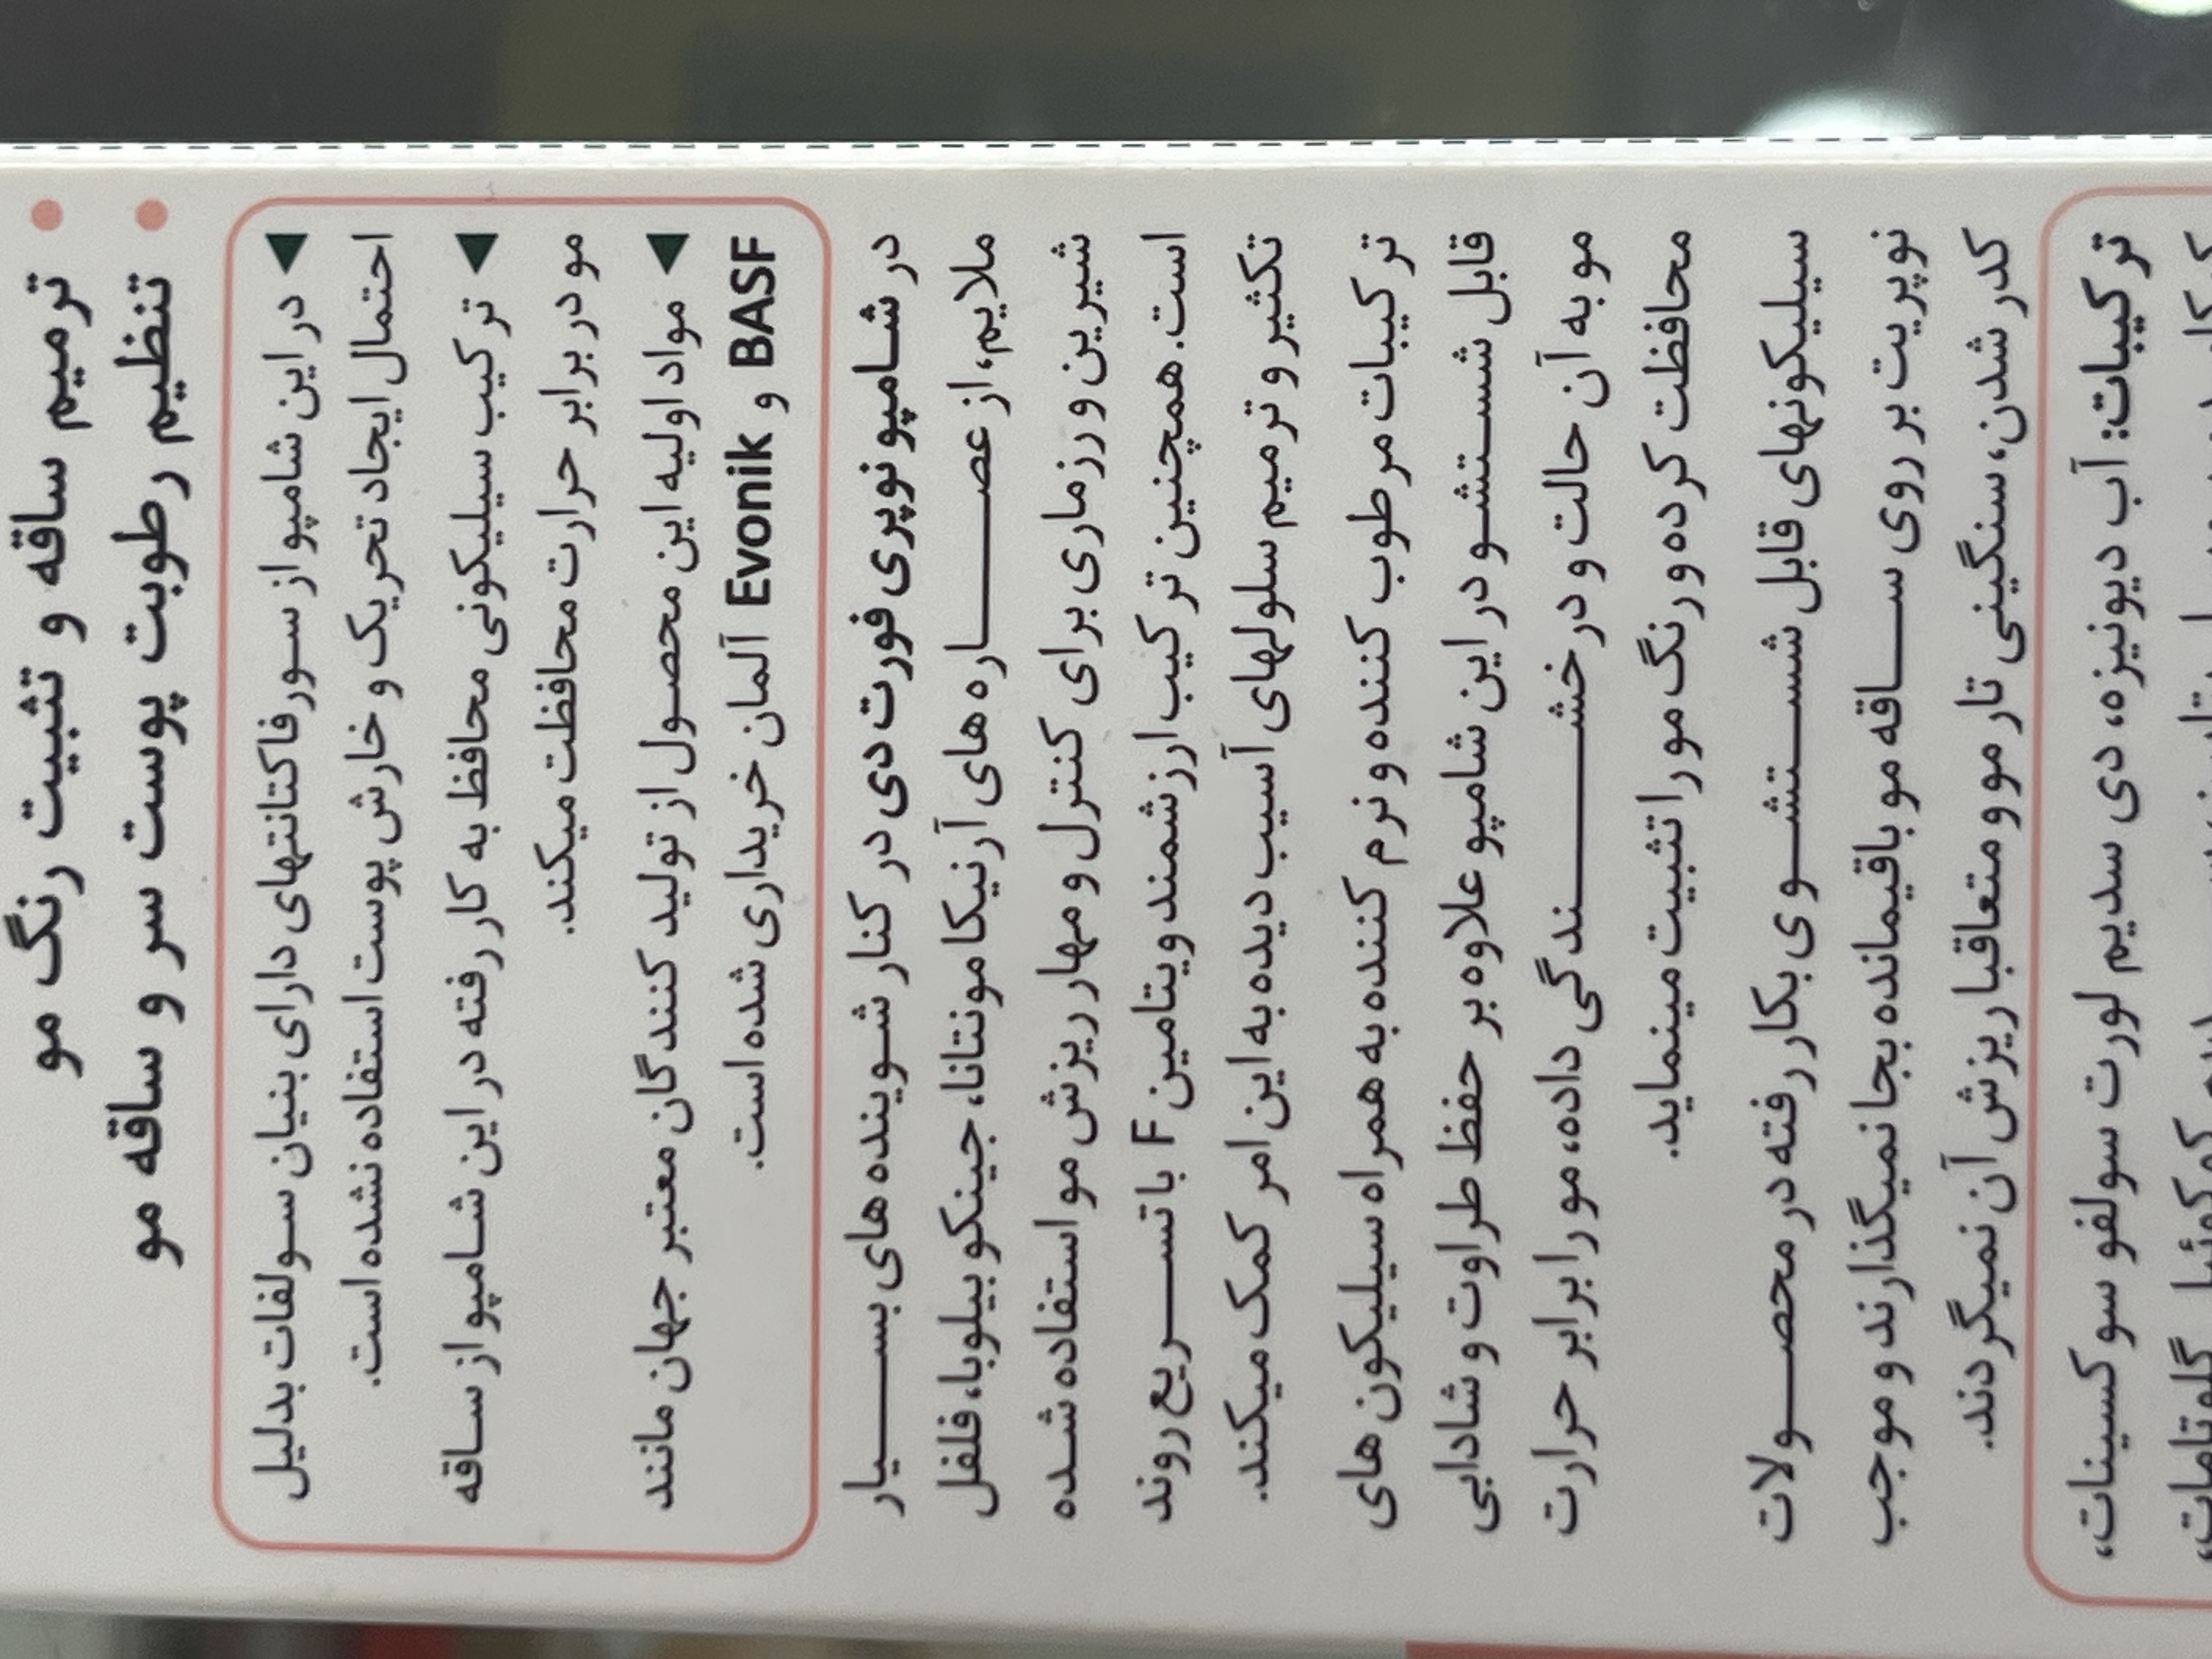 ترمیم ساقه و تثبیت رنگ مو
تنظیم رطوبت پوست سر و ساقه مو
در این شامپو از سورفاکتانتهای دارای بنیان سولفات بدلیل
احتمال ایجاد تحریک و خارش پوست استفاده نشده است.
ترکیب سیلیکونی محافظ به کار رفته در این شامپو از ساقه
مو در برابر حرارت محافظت میکند.
مواد اولیه این محصول از تولید کنندگان معتبر جهان مانند
BASF و Evonik آلمان خریداری شده است.
در شامپو نوپری فورت دی در کنار شوینده های بسیار
ملایم، از عصاره های آرنیکا مونتانا، جینکو بیلوبا، فلفل
شیرین و رزماری برای کنترل و مهار ریزش مو استفاده شده
است. همچنین ترکیب ارزشمند ویتامین F با تسریع روند
تکثیر و ترمیم سلولهای آسیب دیده به این امر کمک میکند.
ترکیبات مرطوب کننده و نرم کننده به همراه سیلیکون های
قابل شستشو در این شامپو علاوه بر حفظ طراوت و شادابی
مو به آن حالت و درخشندگی داده، مو را برابر حرارت
محافظت کرده و رنگ مو را تثبیت مینماید.
سیلیکونهای قابل شستشوی بکار رفته در محصولات
نوپریت بر روی ساقه مو باقیمانده بجا نمیگذارند و موجب
کدر شدن، سنگینی تار مو و متعاقبا ریزش آن نمیگردند.
ترکیبات: آب دیونیزه، دی سدیم لورت سولفو سوکسینات،